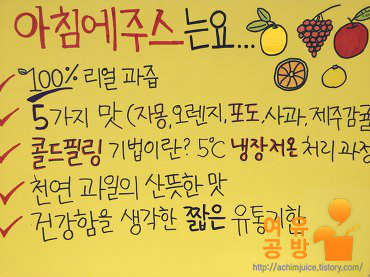 아침에주스는요...
100% 리얼 과즙
5가지 맛 (자몽,오렌지,포도,사과,제주감귤
콜드필링 기법이란? 5℃ 냉장저온 처리 과정
천연 과일의 산뜻한 맛
건강함을 생각한 짧은 유통기한
여유
공방
http://achimjuice.tistory.com